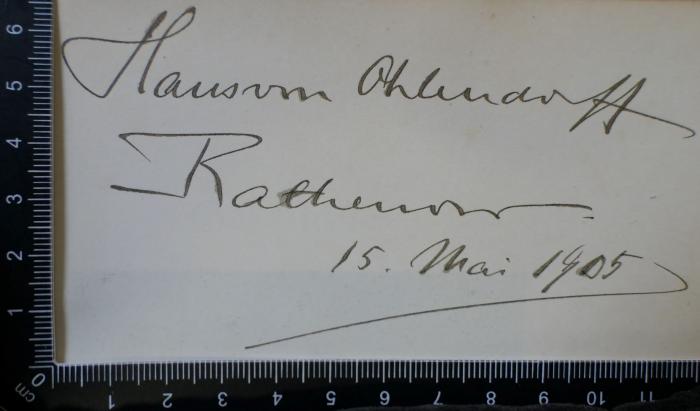 Hans von Ohlendorff
Rathenow
15. Mai 1905
6
5
4
3
2
1
0
cm
1 2 3 4 5 6 7 8 9 10 11